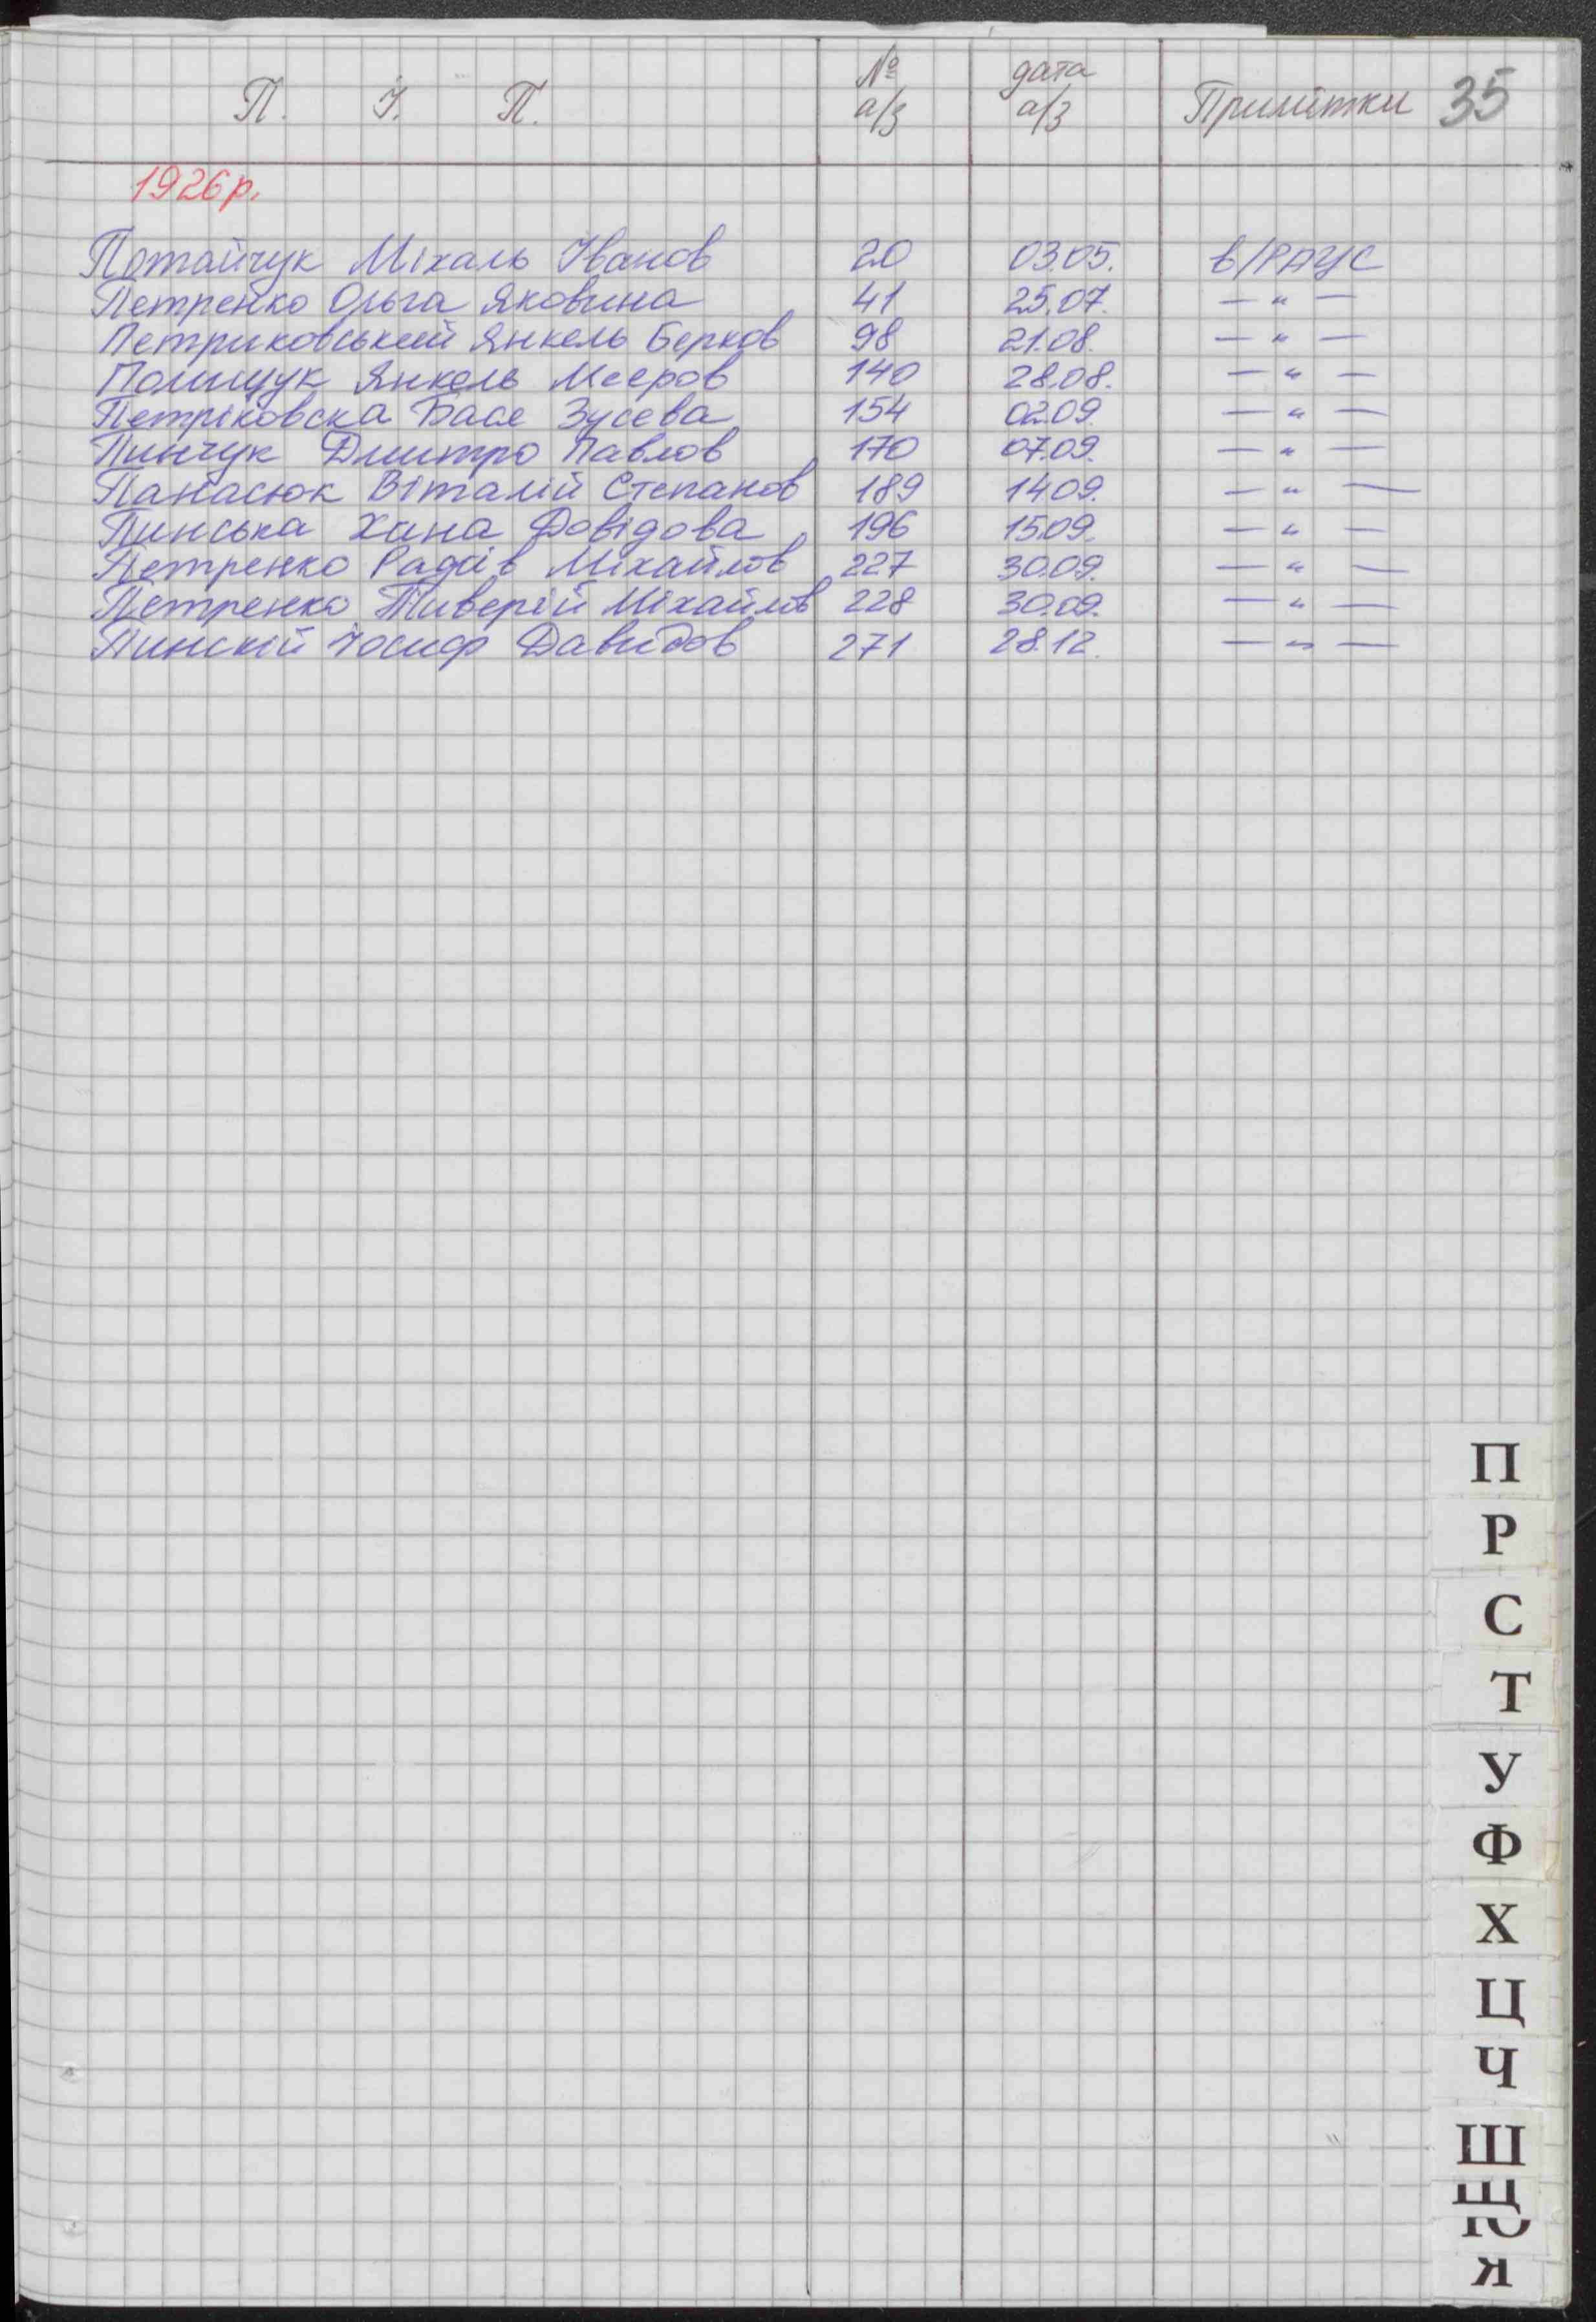 П. І. П. № а/з дата а/з Примітки 35
1926р.
Потайчук Міхаль Іванов 20 03.05. в/РАЦС
Петренко Ольга Яковина 41 25.07. — „ —
Петриковський Янкель Берков 98 21.08. — „ —
Полищук Янкель Меєров 140 28.08. — „ —
Петріковска Бася Зусева 154 02.09. — „ —
Пинчук Дмитро Павлов 170 07.09. — „ —
Панасюк Віталій Степанов 189 14.09. — „ —
Пинська Хана Довідова 196 15.09. — „ —
Петренко Міхайлов 227 30.09. — „ —
Петренко Тиверій Міхайлов 228 30.09. — „ —
Пинскій Іосиф Давидов 271 28.12. — „ —
П
Р
С
Т
У
Ф
Х
Ц
Ч
Ш
Щ
Ю
Я